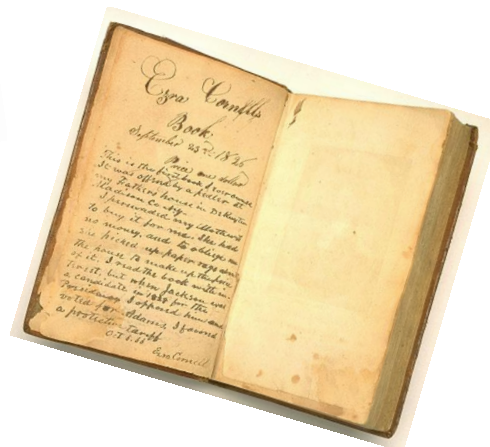 Ezra Cornell's
Book.
September 23d. 1826
Price one dollar
This is the first book I ever owned
It was offered by a pedler at
my Fathers house in DeRuyter
Madison County.
I persuaded my Mother
to buy it for me. She had
no money, and to oblige me
she picked up paper rags in
the house to make up the price
of it. I read the book with in-
terest, but when Jackson was
a candidate in 1828 for the
President I opposed him and
voted for Adams, I favored
a protective tariff
Ezra Cornell